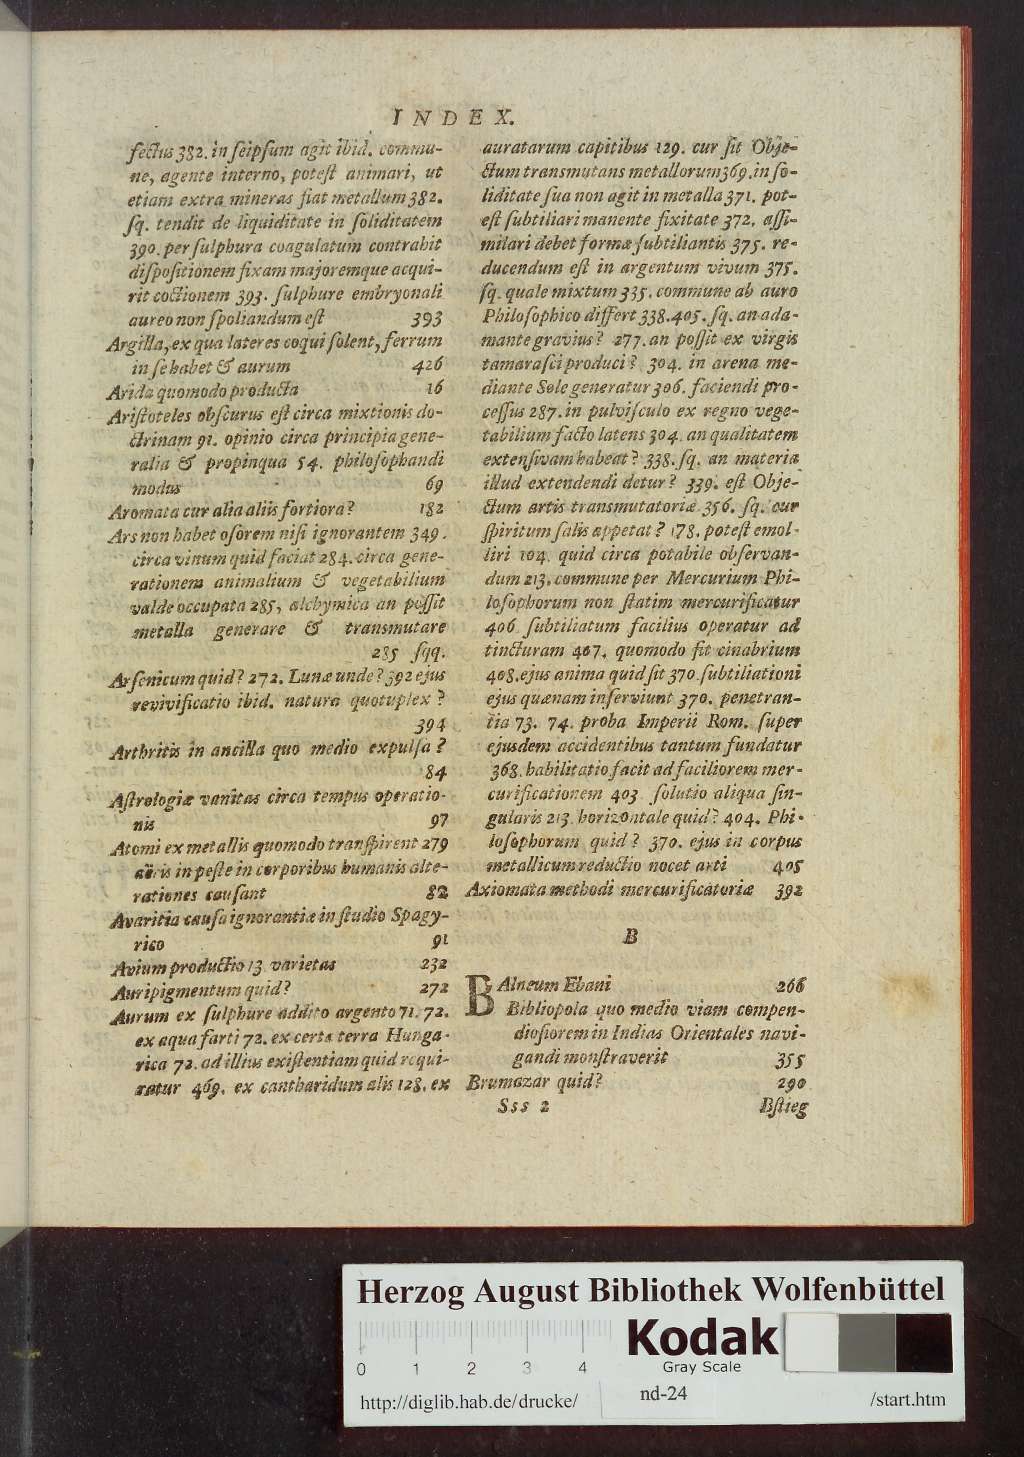 INDEX.
fectus 382. in ſeipſum agit ibid. commu-
ne, agente interno, poteſt animari, ut
etiam extra mineras fiat metallum 382.
ſq. tendit de liquiditate in ſoliditatem
390. per ſulphura coagulatum contrahit
diſpoſitionem fixam majoremque acqui-
rit coctionem 393. ſulphure embryonali
aureo non ſpoliandum eſt 393
Argilla, ex qua lateres coqui ſolent, ferrum
in ſe habet & aurum 426
Arida quomodo producta 16
Ariſtoteles obſcurus eſt circa mixtionis do-
ctrinam 91. opinio circa principia gene-
ralia & propinqua 54. philoſophandi
modus 69
Aromata cur alia aliis fortiora? 182
Ars non habet oſorem niſi ignorantem 349.
circa vinum quid faciat 284. circa gene-
rationem animalium & vegetabilium
valde occupata 285, alchymica an poſſit
metalla generare & transmutare
285 ſqq.
Arſenicum quid? 272. Lunæ unde? 392 ejus
revivificatio ibid. natura quotuplex?
394
Arthritis in ancilla quo medio expulſa?
84
Aſtrologiæ vanitas circa tempus operatio-
nis 97
Atomi ex metallis quomodo tranſpirent 279
aëris in peſte in corporibus humanis alte-
rationes cauſant 82
Avaritia cauſa ignorantiæ in ſtudio Spagy-
rico 91
Avium productio 13. varietas 232
Auripigmentum quid? 272
Aurum ex ſulphure addito argento 71. 72.
ex aqua farti 72. ex certa terra Hunga-
rica 72. ad illius exiſtentiam quid requi-
ratur 469. ex cantharidum alis 128. ex
auratarum capitibus 129. cur ſit Obje-
ctum transmutans metallorum 369. in ſo-
liditate ſua non agit in metalla 371. pot-
eſt ſubtiliari manente fixitate 372. aſſi-
milari debet formæ ſubtiliantis 375. re-
ducendum eſt in argentum vivum 375.
ſq. quale mixtum 335. commune ab auro
Philoſophico differt 338. 405. ſq. an ada-
mante gravius? 277. an poſſit ex virgis
tamaraſci produci? 304. in arena me-
diante Sole generatur 306. faciendi pro-
ceſſus 287. in pulviſculo ex regno vege-
tabilium facto latens 304. an qualitatem
extenſivam habeat? 338. ſq. an materia
illud extendendi detur? 339. eſt Obje-
ctum artis transmutatoriæ 356. ſq. cur
ſpiritum ſalis appetat? 178. poteſt emol-
liri 104. quid circa potabile obſervan-
dum 213. commune per Mercurium Phi-
loſophorum non ſtatim mercurificatur
406 ſubtiliatum facilius operatur ad
tincturam 407. quomodo fit cinabrium
408. ejus anima quid ſit 370. ſubtiliationi
ejus quænam inſerviunt 370. penetran-
tia 73. 74. proba Imperii Rom. ſuper
ejusdem accidentibus tantum fundatur
368. habilitatio facit ad faciliorem mer-
curificationem 403 ſolutio aliqua ſin-
gularis 213. horizontale quid? 404. Phi-
loſophorum quid? 370. ejus in corpus
metallicum reductio nocet arti 405
Axiomata methodi mercurificatoriæ 392
B
BAlneum Ebani 266
Bibliopola quo medio viam compen-
dioſiorem in Indias Orientales navi-
gandi monſtraverit 355
Brumazar quid? 290
Sss 2 Bſtieg
Herzog August Bibliothek Wolfenbüttel
Kodak
Gray Scale
0 1 2 3 4
http://diglib.hab.de/drucke/ nd-24 /start.htm